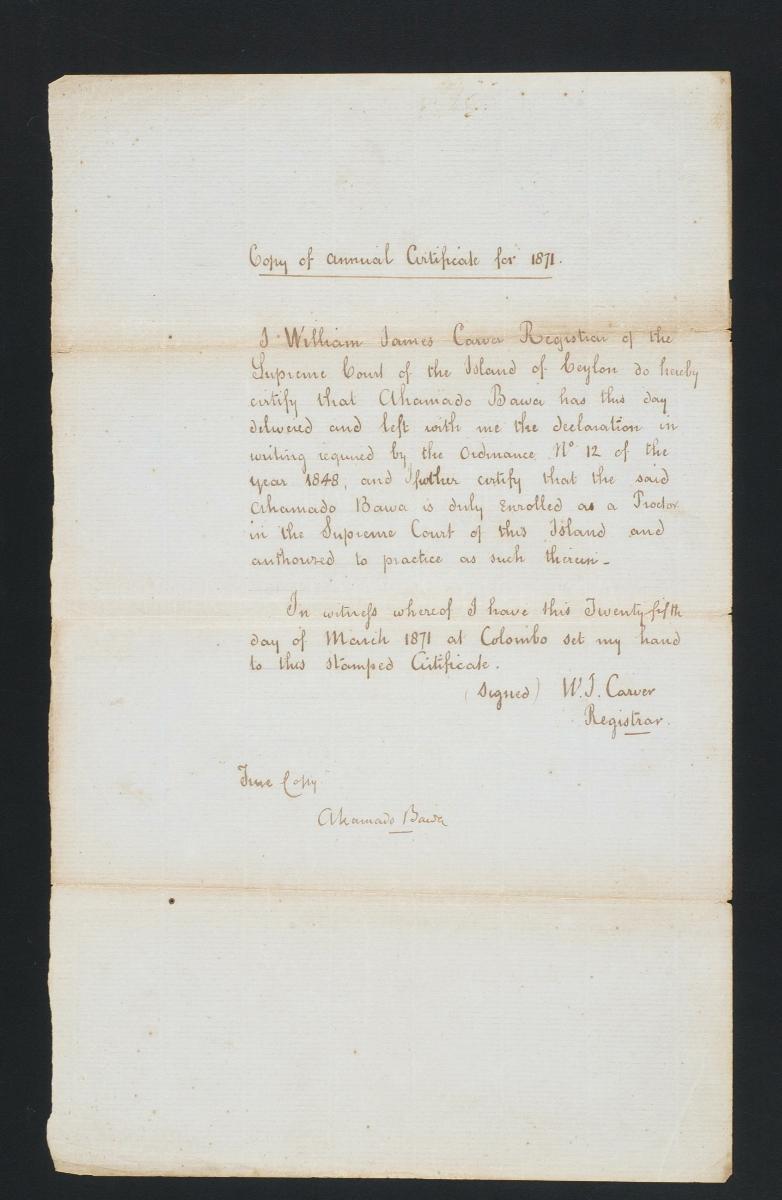 Copy of annual Certificate for 1871.
I William James Carver Registrar of the
Supreme Court of the Island of Ceylon do hereby
certify that Ahamado Bawa has this day
delivered and left with me the declaration in
writing required by the Ordinance No 12 of the
year 1848, and I further certify that the said
Ahamado Bawa is duly Enrolled as a Proctor
in the Supreme Court of this Island and
authorized to practice as such therein-
In witness whereof I have this Twenty fifth
day of March 1871 at Colombo set my hand
to this stamped Certificate.
(Signed) W. J. Carver
Registrar.
True Copy
Ahamado Bawa